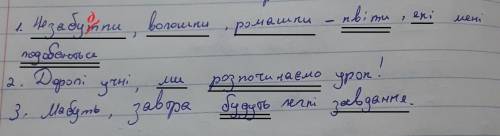 1. Незабудтки, волошки, ромашки – квіти, які мені
подобаються
2. Дорогі учні, ми розпочинаємо урок!
3. Мабуть, завтра будуть легкі завдання.